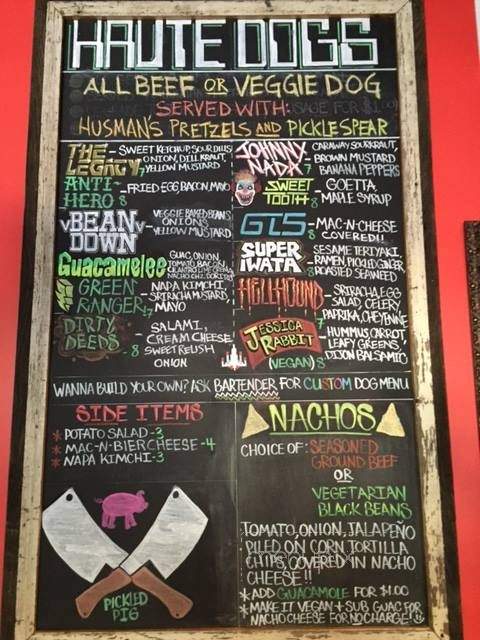 HAUTE DOGS
ALL BEEF OR VEGGIE DOG
SERVED WITH:
HUSMAN'S PRETZELS AND PICKLE SPEAR
THE LEGACY 7 - SWEET KETCHUP, SOUR DILLS
ONION, DILL KRAUT,
YELLOW MUSTARD
ANTI-HERO 8 - FRIED EGG, BACON, MAYO
VBEAN DOWN - VEGGIE BAKED BEANS
ONIONS
YELLOW MUSTARD
Guacamelee GUAC, ONION,
TOMATO, BACON,
CILANTRO LIME CREMA,
GREEN RANGER 7 NAPA KIMCHI,
SRIRACHA MUSTARD,
MAYO
DIRTY DEEDS - 8 SALAMI,
CREAM CHEESE
SWEET RELISH
ONION
JOHNNY NADA 7 CARAWAY SOURKRAUT,
BROWN MUSTARD
BANANA PEPPERS
SWEET TOOTH 8 - GOETTA,
MAPLE SYRUP
GTS 8 - MAC-N-CHEESE
COVERED!!
SUPER IWATA 8 SESAME TERIYAKI,
RAMEN, PICKLED GINGER
ROASTED SEAWEED
HELLHOUND - SRIRACHA, EGG
SALAD, CELERY
PAPRIKA, CHEYENNE
JESSICA RABBIT (VEGAN) 8 HUMMUS, CARROT
LEAFY GREENS
DIJON BALSAMIC
WANNA BUILD YOUR OWN? ASK BARTENDER FOR CUSTOM DOG MENU
SIDE ITEMS
* POTATO SALAD - 3
* MAC-N-BIERCHEESE - 4
* NAPA KIMCHI - 3
PICKLED
PIG
NACHOS
CHOICE OF: SEASONED
GROUND BEEF
OR
VEGETARIAN
BLACK BEANS
TOMATO, ONION, JALAPEÑO
PILED ON CORN TORTILLA
CHIPS, COVERED IN NACHO
CHEESE!!
* ADD GUACAMOLE FOR $1.00
* MAKE IT VEGAN & SUB GUAC FOR
NACHO CHEESE FOR NO CHARGE!!